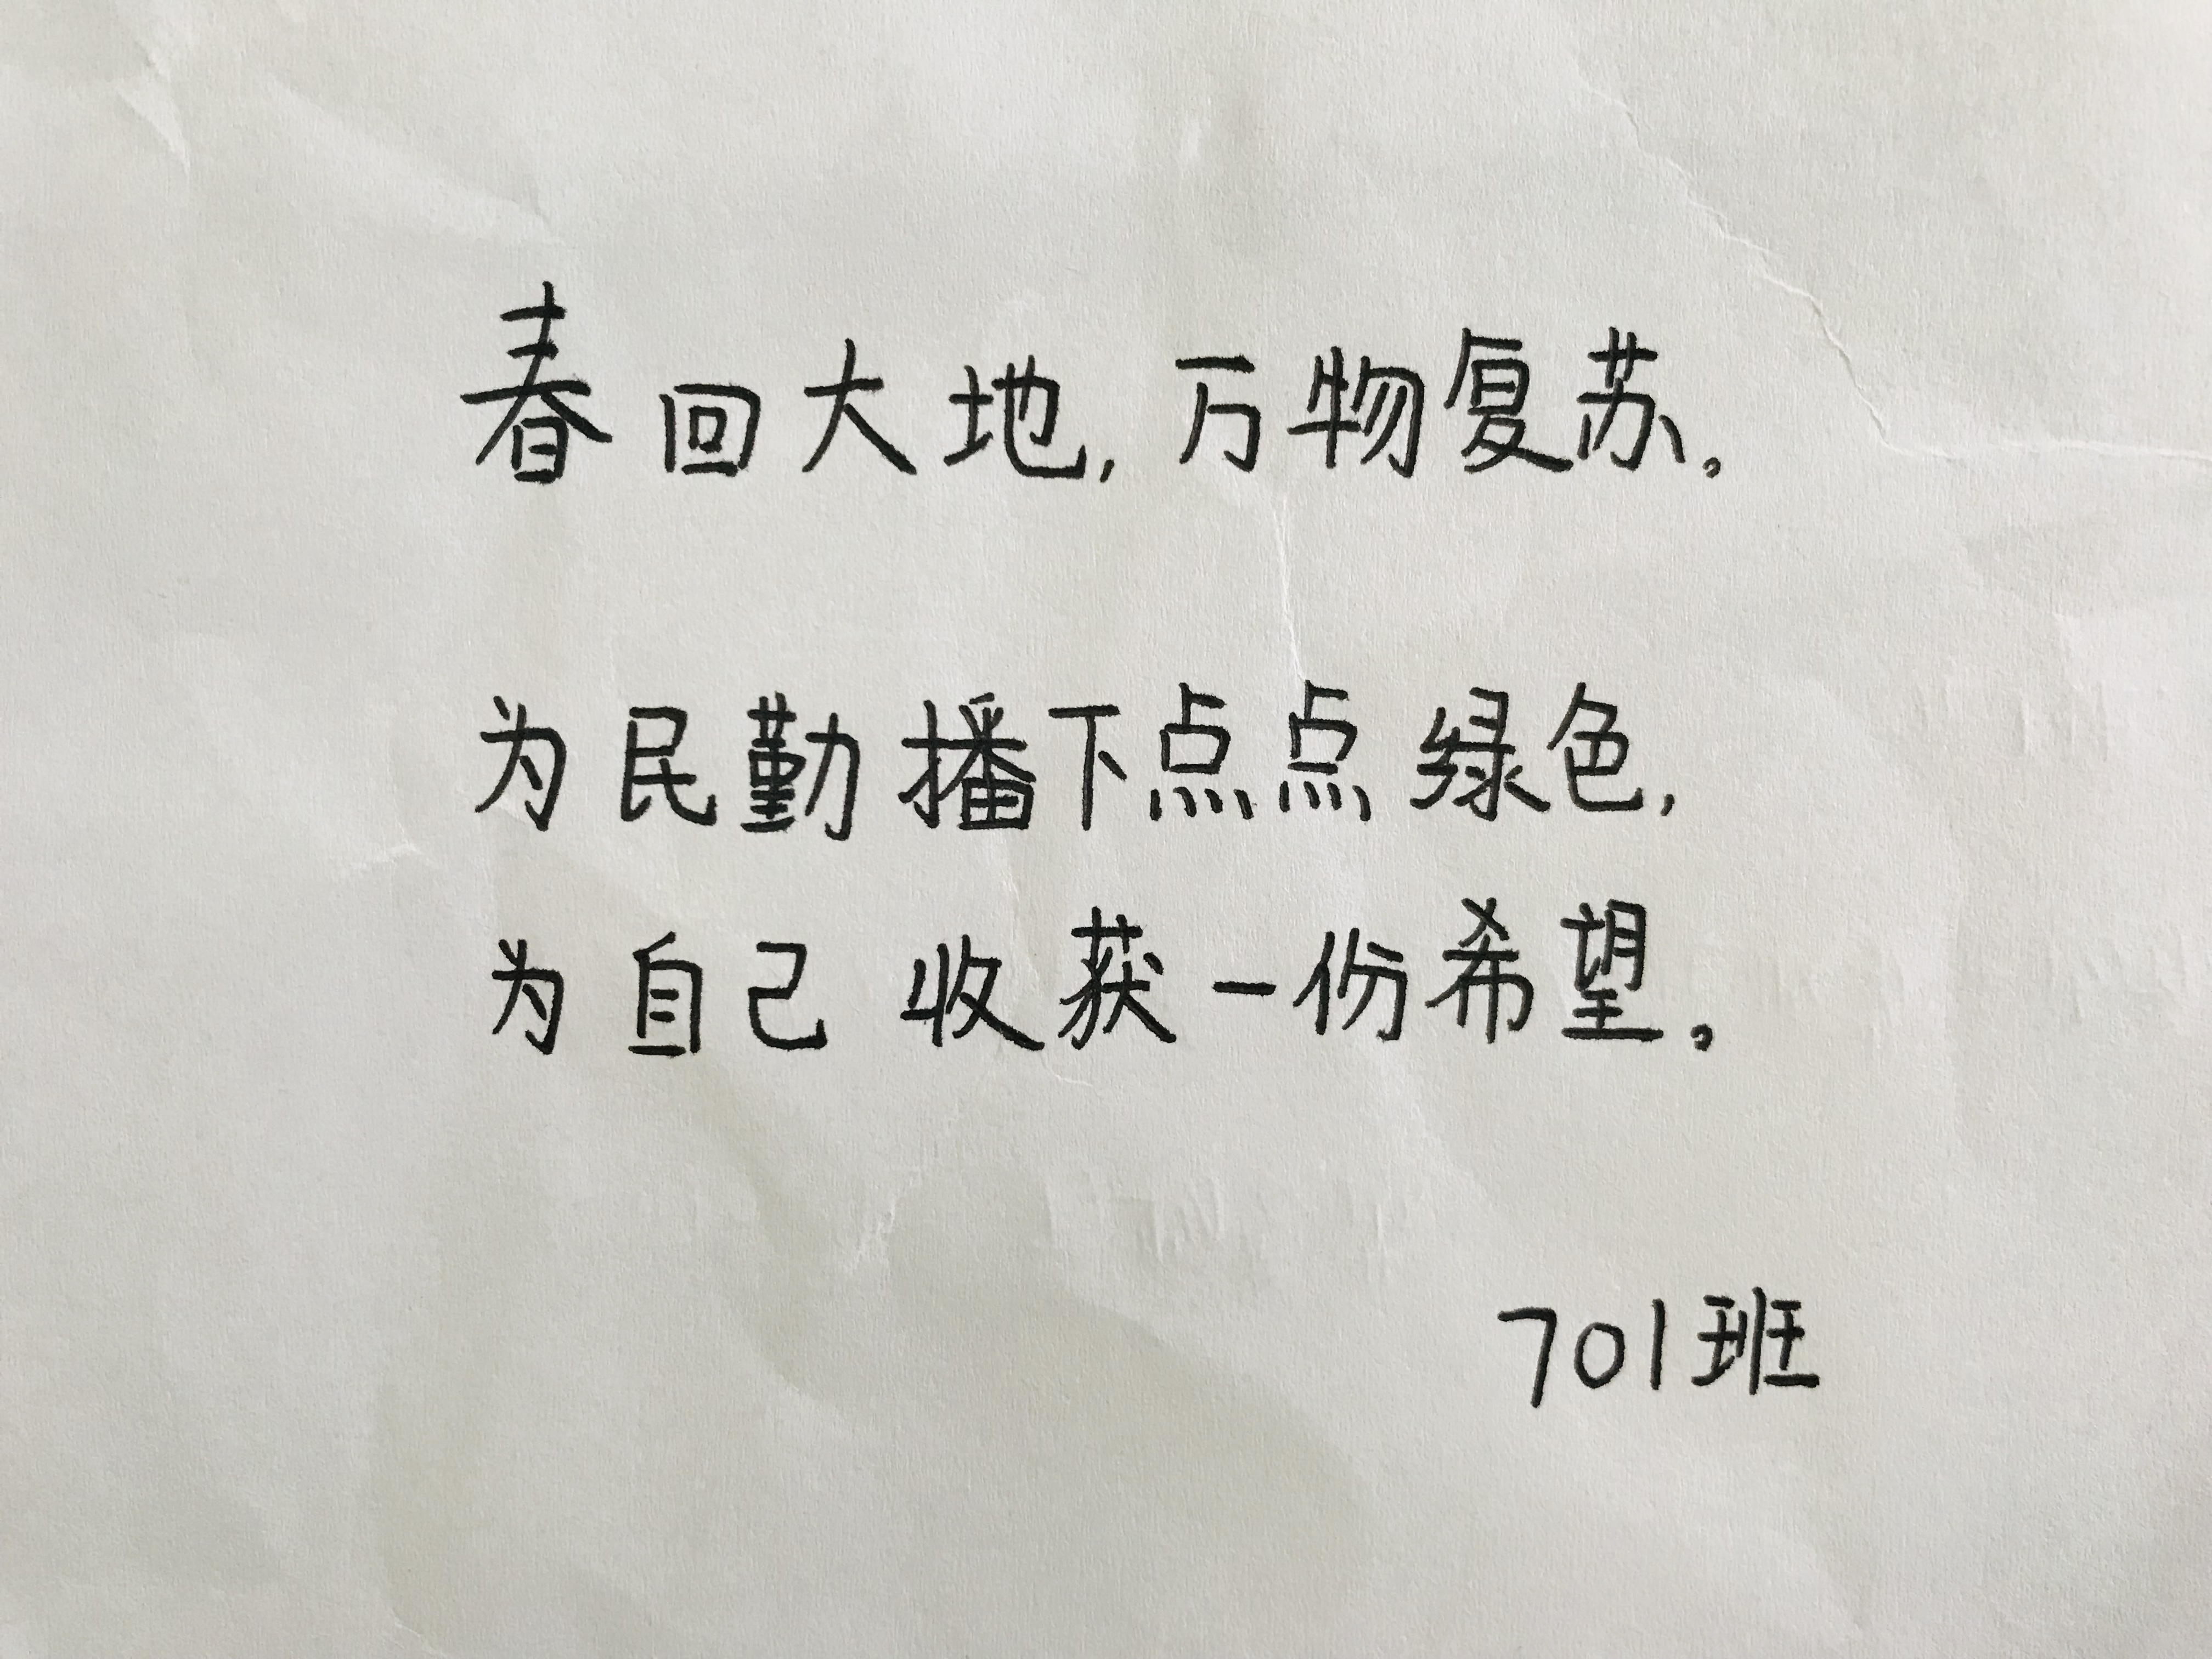 春回大地,万物复苏。
为民勤播下点点绿色,
为自己收获一份希望。
701班